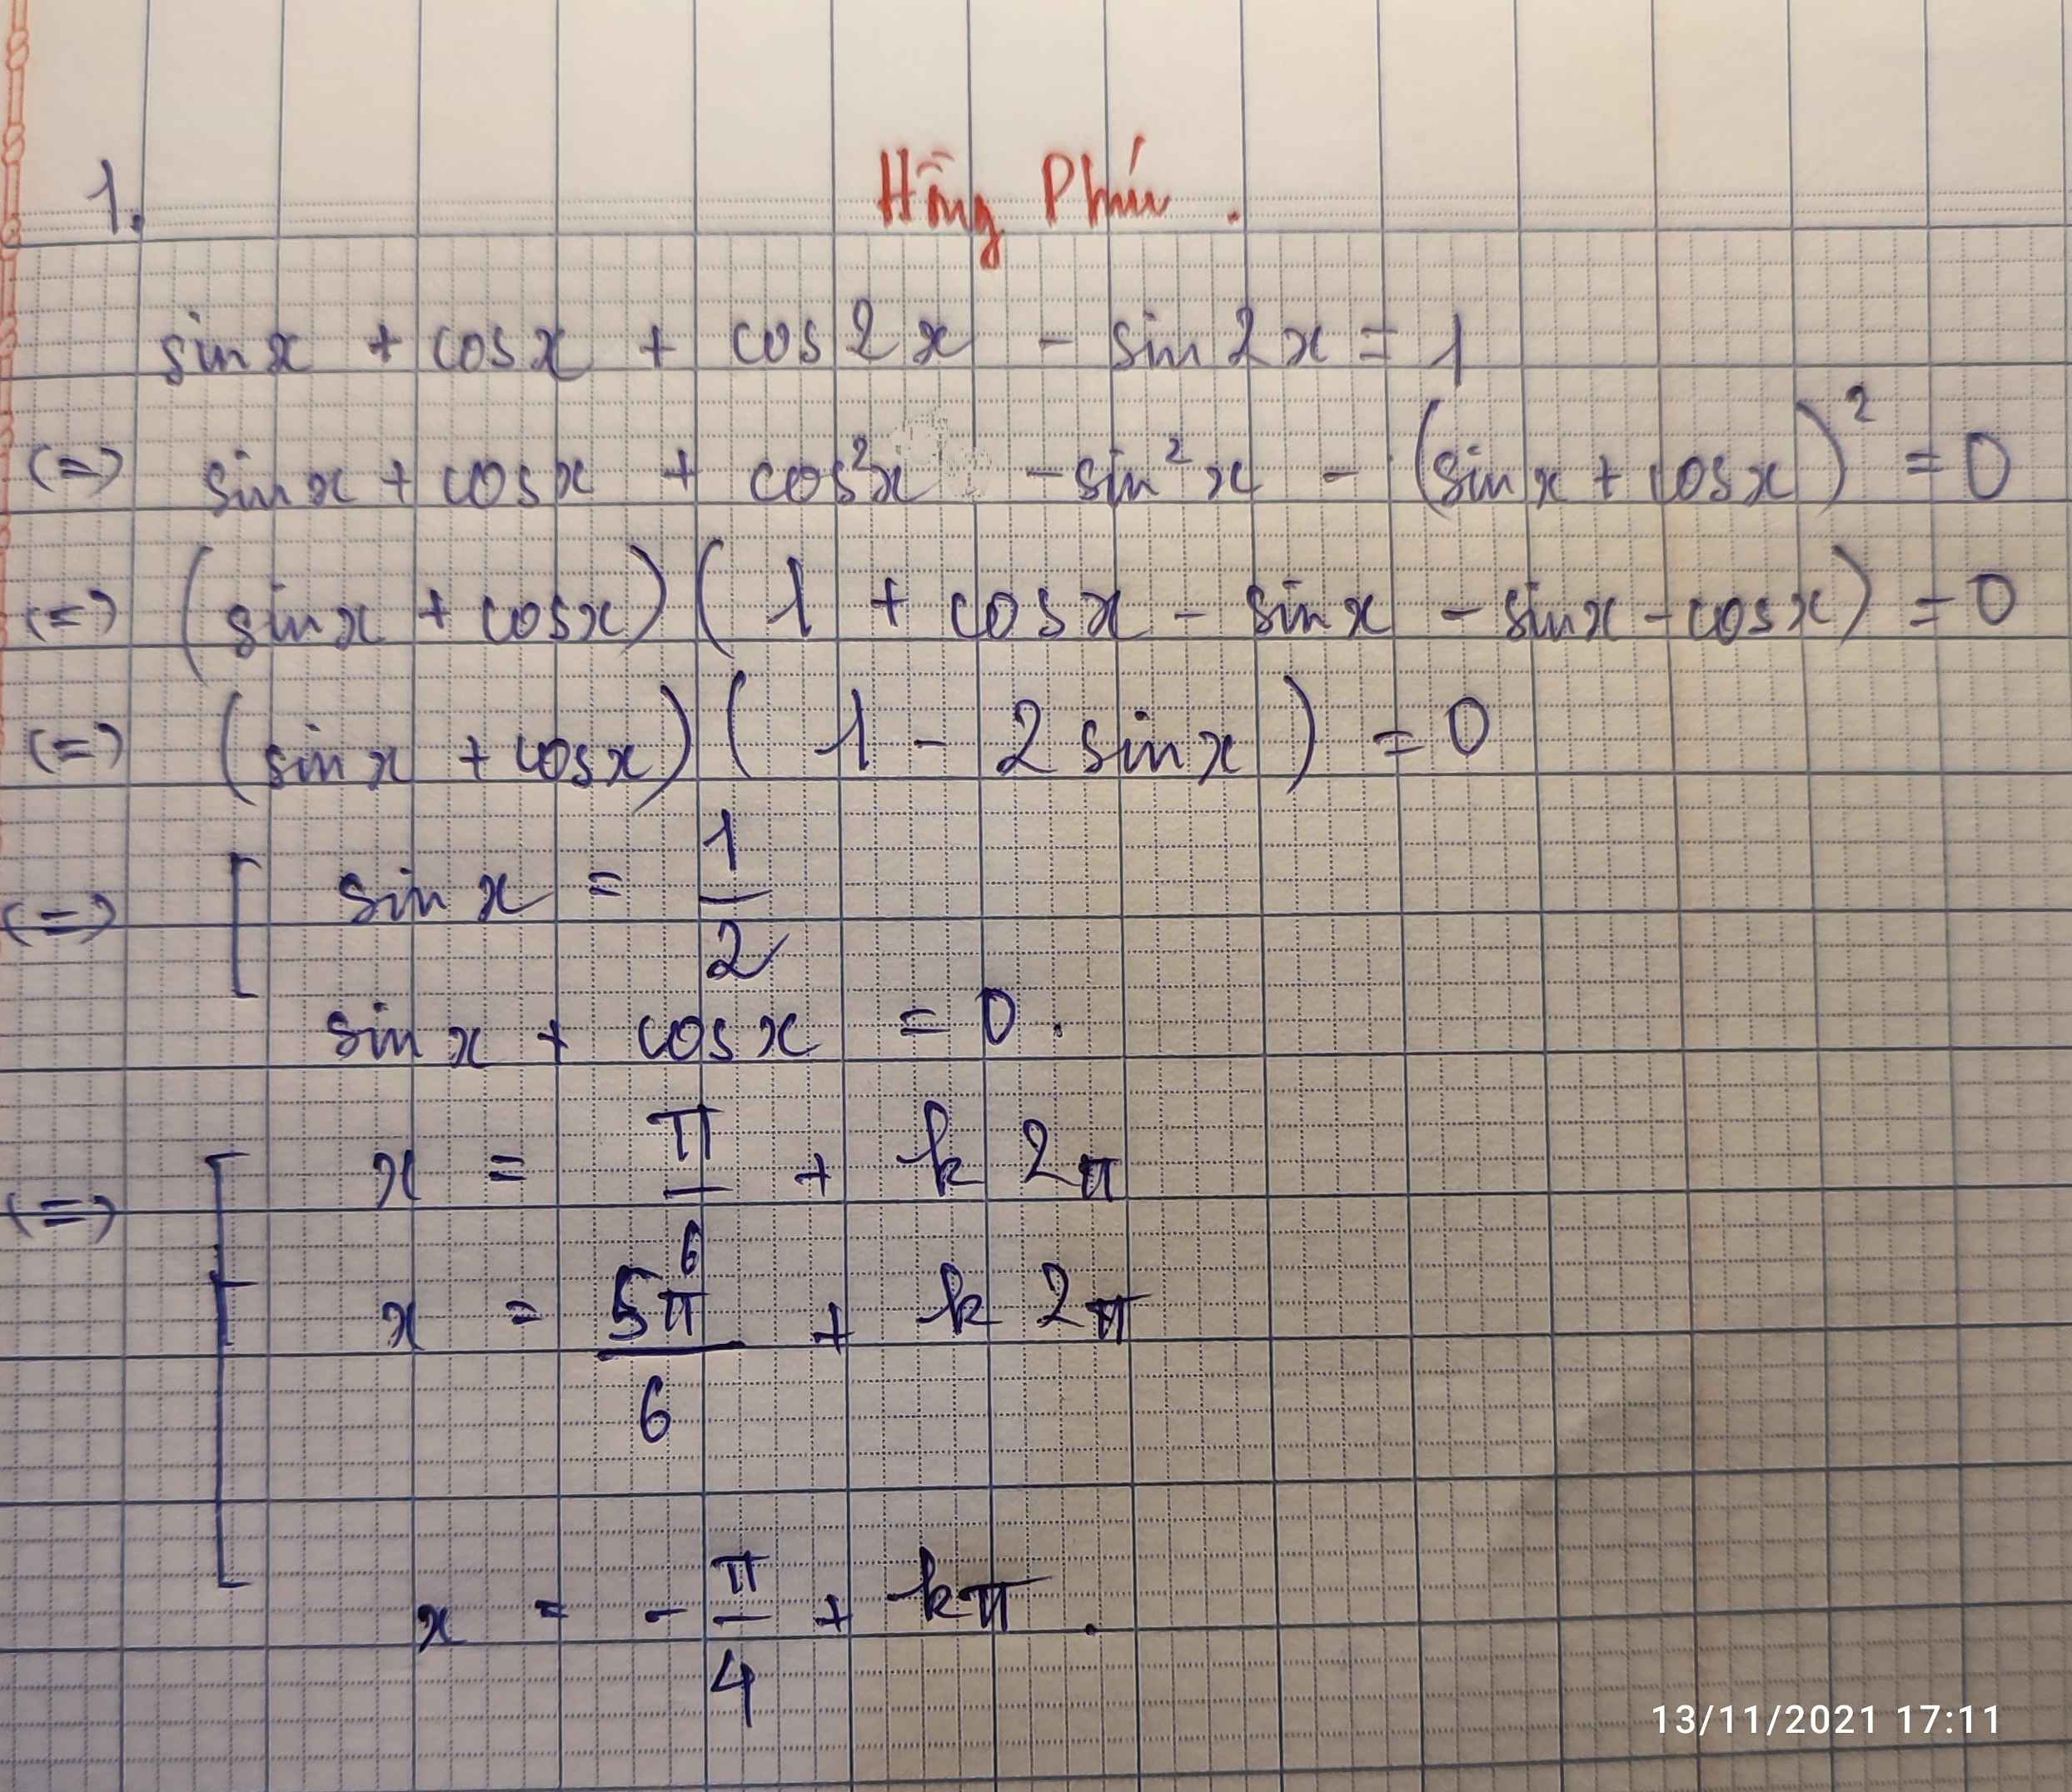 1.
Hồng Phúc.
sin x + cos x + cos 2x - sin 2x = 1
(=) sin x + cos x + cos²x - sin²x - (sin x + cos x)² = 0
(=) (sin x + cos x)(1 + cos x - sin x - sin x - cos x) = 0
(=) (sin x + cos x)(1 - 2 sin x) = 0
(=) [ sin x = 1/2
sin x + cos x = 0.
(=) [ x = π/6 + k2π
x = 5π/6 + k2π
x = -π/4 + kπ.
13/11/2021 17:11